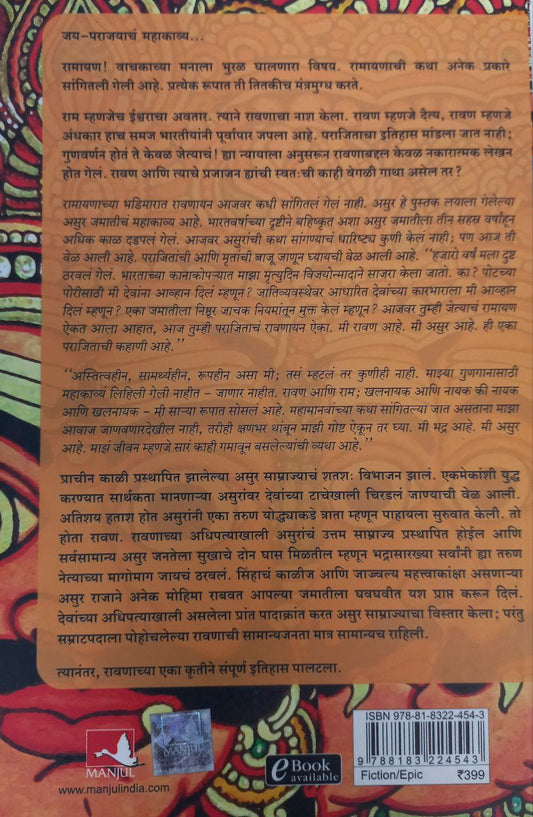 जय-पराजयाचं महाकाव्य...
रामायण! वाचकाच्या मनाला भुरळ घालणारा विषय. रामायणाची कथा अनेक प्रकारे
सांगितली गेली आहे. प्रत्येक रूपात ती तितकीच मंत्रमुग्ध करते.
राम म्हणजेच ईश्वराचा अवतार. त्याने रावणाचा नाश केला. रावण म्हणजे दैत्य, रावण म्हणजे
अंधकार हाच समज भारतीयांनी पूर्वापार जपला आहे. पराजिताचा इतिहास मांडला जात नाही;
गुणवर्णन होतं ते केवळ जेत्याचं! ह्या न्यायाला अनुसरून रावणाबद्दल केवळ नकारात्मक लेखन
होत गेलं. रावण आणि त्याचे प्रजाजन ह्यांची स्वत:ची काही वेगळी गाथा असेल तर?
रामायणाच्या भडिमारात रावणायन आजवर कधी सांगितलं गेलं नाही. असुर हे पुस्तक लयाला गेलेल्या
असुर जमातीचं महाकाव्य आहे. भारतवर्षाच्या दृष्टीने बहिष्कृत अशा असुर जमातीला तीन सहस्र वर्षांहून
अधिक काळ दडपलं गेलं. आजवर असुरांची कथा सांगण्याचं धारिष्ट्य कुणी केलं नाही; पण आज ती
वेळ आली आहे. पराजितांची आणि मृतांची बाजू जाणून घ्यायची वेळ आली आहे. “हजारो वर्षं मला दुष्ट
ठरवलं गेलं. भारताच्या कानाकोपऱ्यात माझा मृत्युदिन विजयोन्मादाने साजरा केला जातो. का? पोटच्या
पोरीसाठी मी देवांना आव्हान दिलं म्हणून? जातिव्यवस्थेवर आधारित देवांच्या कारभाराला मी आव्हान
दिलं म्हणून? एका जमातीला निष्ठुर जाचक नियमांतून मुक्त केलं म्हणून? आजवर तुम्ही जेत्याचं रामायण
ऐकत आला आहात, आज तुम्ही पराजिताचं रावणायन ऐका. मी रावण आहे. मी असुर आहे. ही एका
पराजिताची कहाणी आहे.”
“अस्तित्वहीन, सामर्थ्यहीन, रूपहीन असा मी; तसं म्हटलं तर कुणीही नाही. माझ्या गुणगानासाठी
महाकाव्यं लिहिली गेली नाहीत – जाणार नाहीत. रावण आणि राम; खलनायक आणि नायक की नायक
आणि खलनायक – मी साऱ्या रूपात सोसलं आहे. महामानवांच्या कथा सांगितल्या जात असताना माझा
आवाज जाणवणारदेखील नाही, तरीही क्षणभर थांबून माझी गोष्ट ऐकून तर घ्या. मी भद्र आहे. मी असुर
आहे. माझं जीवन म्हणजे सारं काही गमावून बसलेल्यांची व्यथा आहे.”
प्राचीन काळी प्रस्थापित झालेल्या असुर साम्राज्याचं शतश: विभाजन झालं. एकमेकांशी युद्ध
करण्यात सार्थकता मानणाऱ्या असुरांवर देवांच्या टाचेखाली चिरडलं जाण्याची वेळ आली.
अतिशय हताश होत असुरांनी एका तरुण योद्ध्याकडे त्राता म्हणून पाहायला सुरुवात केली. तो
होता रावण. रावणाच्या अधिपत्याखाली असुरांचं उत्तम साम्राज्य प्रस्थापित होईल आणि
सर्वसामान्य असुर जनतेला सुखाचे दोन घास मिळतील म्हणून भद्रासारख्या सर्वांनी ह्या तरुण
नेत्याच्या मागोमाग जायचं ठरवलं. सिंहाचं काळीज आणि जाज्वल्य महत्त्वाकांक्षा असणाऱ्या
असुर राजाने अनेक मोहिमा राबवत आपल्या जमातीला घवघवीत यश प्राप्त करून दिलं.
देवांच्या अधिपत्याखाली असलेला प्रांत पादाक्रांत करत असुर साम्राज्याचा विस्तार केला; परंतु
सम्राटपदाला पोहोचलेल्या रावणाची सामान्यजनता मात्र सामान्यच राहिली.
त्यानंतर, रावणाच्या एका कृतीने संपूर्ण इतिहास पालटला.
MANJUL
www.manjulindia.com
MANJUL
eBook
available
ISBN 978-81-8322-454-3
9 788183 224543
Fiction/Epic ₹399